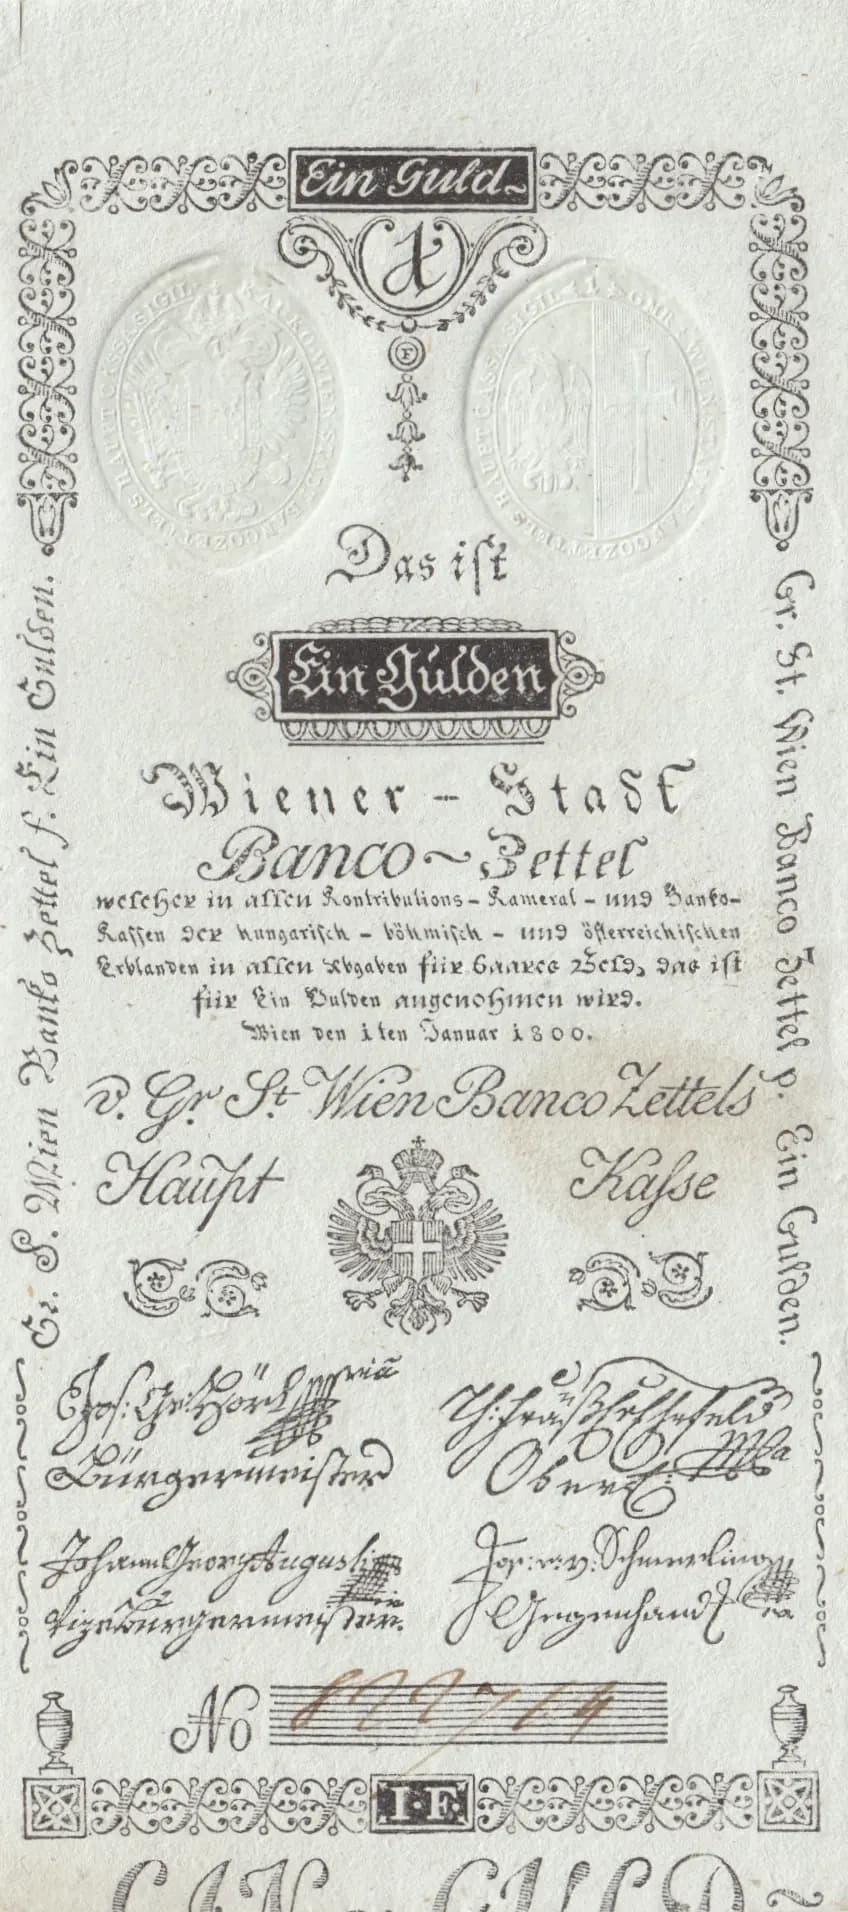 Ein Guld~
1
F
Das ist
Ein Gulden
Wiener - Stadt
Banco ~ Zettel
welcher in allen Kontributions - Kameral - und Banko-
Kassen der hungarisch - böhmisch - und österreichischen
Erblanden in allen Abgaben für baares Geld, das ist
für Ein Gulden angenohmen wird.
Wien den 1ten Januar 1800.
v. Gr. St. Wien Banco Zettels
Haupt Kasse
Gr. S. Wien Banko Zettel f. Ein Gulden.
Gr. St. Wien Banco Zettel p. Ein Gulden.
Jos: Geo: Hörl
Bürgermeister
Johann Georg Augusti
Vizebürgermeister.
Jos: Schmerling
Gegenhand
No
I·F.
EIN GULD~